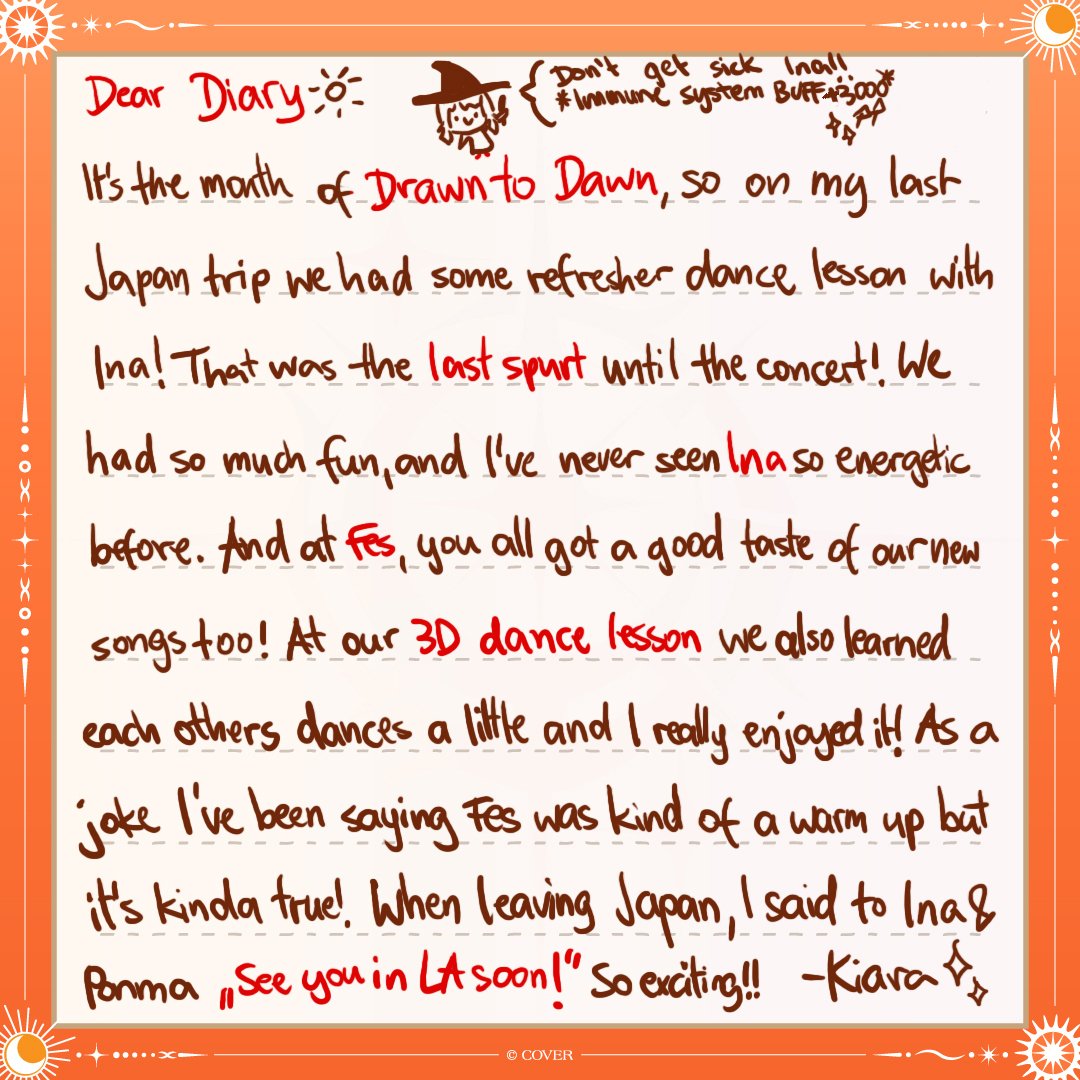 Dear Diary
Don't get sick Ina!!
*Immune system Buff +3.000*
It's the month of Drawn to Dawn, so on my last
Japan trip we had some refresher dance lesson with
Ina! That was the last spurt until the concert! We
had so much fun, and I've never seen Ina so energetic
before. And at Fes, you all got a good taste of our new
songs too! At our 3D dance lesson we also learned
each others dances a little and I really enjoyed it! As a
joke I've been saying Fes was kind of a warm up but
it's kinda true! When leaving Japan, I said to Ina &
Ponma „See you in LA soon!“ So exciting!! -Kiara
© COVER